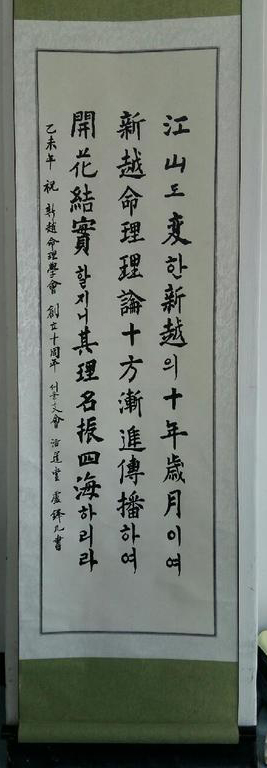 江山도變한新越의十年歲月이여
新越命理理論十方漸進傳播하여
開花結實할지니其理名振四海하리라
乙未年 祝 新越命理學會 創立十周年 文會 堂 盧 書